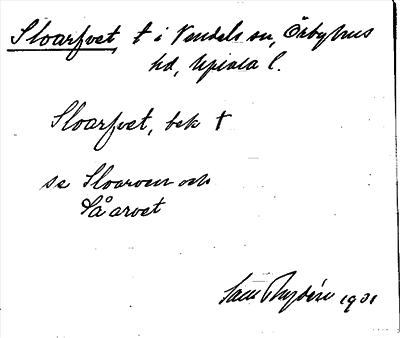 Sloarfvet, t i Vendels sn, Örbyhus
hd, Upsala l.
Sloarfvet, bek t
se Sloarven och
Såarvet
1901